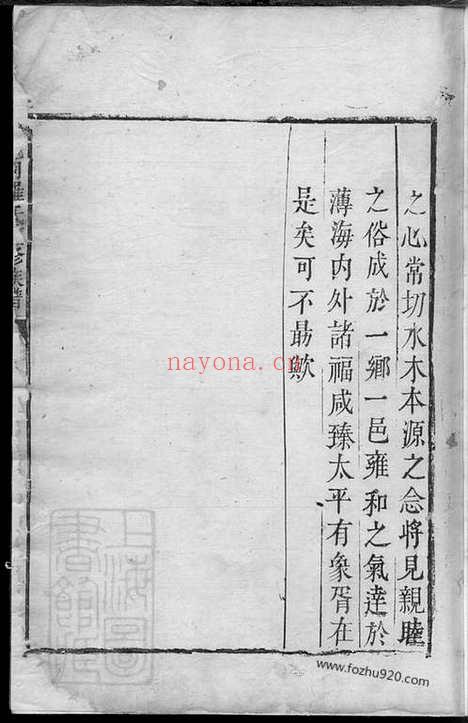 之心常切水木本源之念將見親睦
之俗成於一鄉一邑雍和之氣達於
薄海內外諸福咸臻太平有象胥在
是矣可不勗歟
族譜
上海圖書館
nayona.cn
www.fozhu920.com